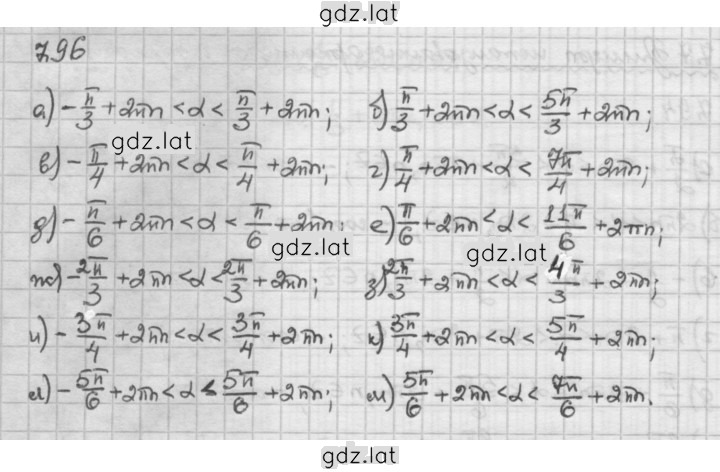 gdz.lat
796
а) -π/3 + 2πn < α < π/3 + 2πn; б) π/3 + 2πn < α < 5π/3 + 2πn;
gdz.lat
в) -π/4 + 2πn < α < π/4 + 2πn; г) π/4 + 2πn < α < 7π/4 + 2πn;
д) -π/6 + 2πn < α < π/6 + 2πn. е) π/6 + 2πn < α < 11π/6 + 2πn;
gdz.lat gdz.lat
ж) -2π/3 + 2πn < α < 2π/3 + 2πn; з) 2π/3 + 2πn < α < 4π/3 + 2πn;
и) -3π/4 + 2πn < α < 3π/4 + 2πn; к) 3π/4 + 2πn < α < 5π/4 + 2πn;
л) -5π/6 + 2πn < α < 5π/6 + 2πn; м) 5π/6 + 2πn < α < 7π/6 + 2πn.
gdz.lat